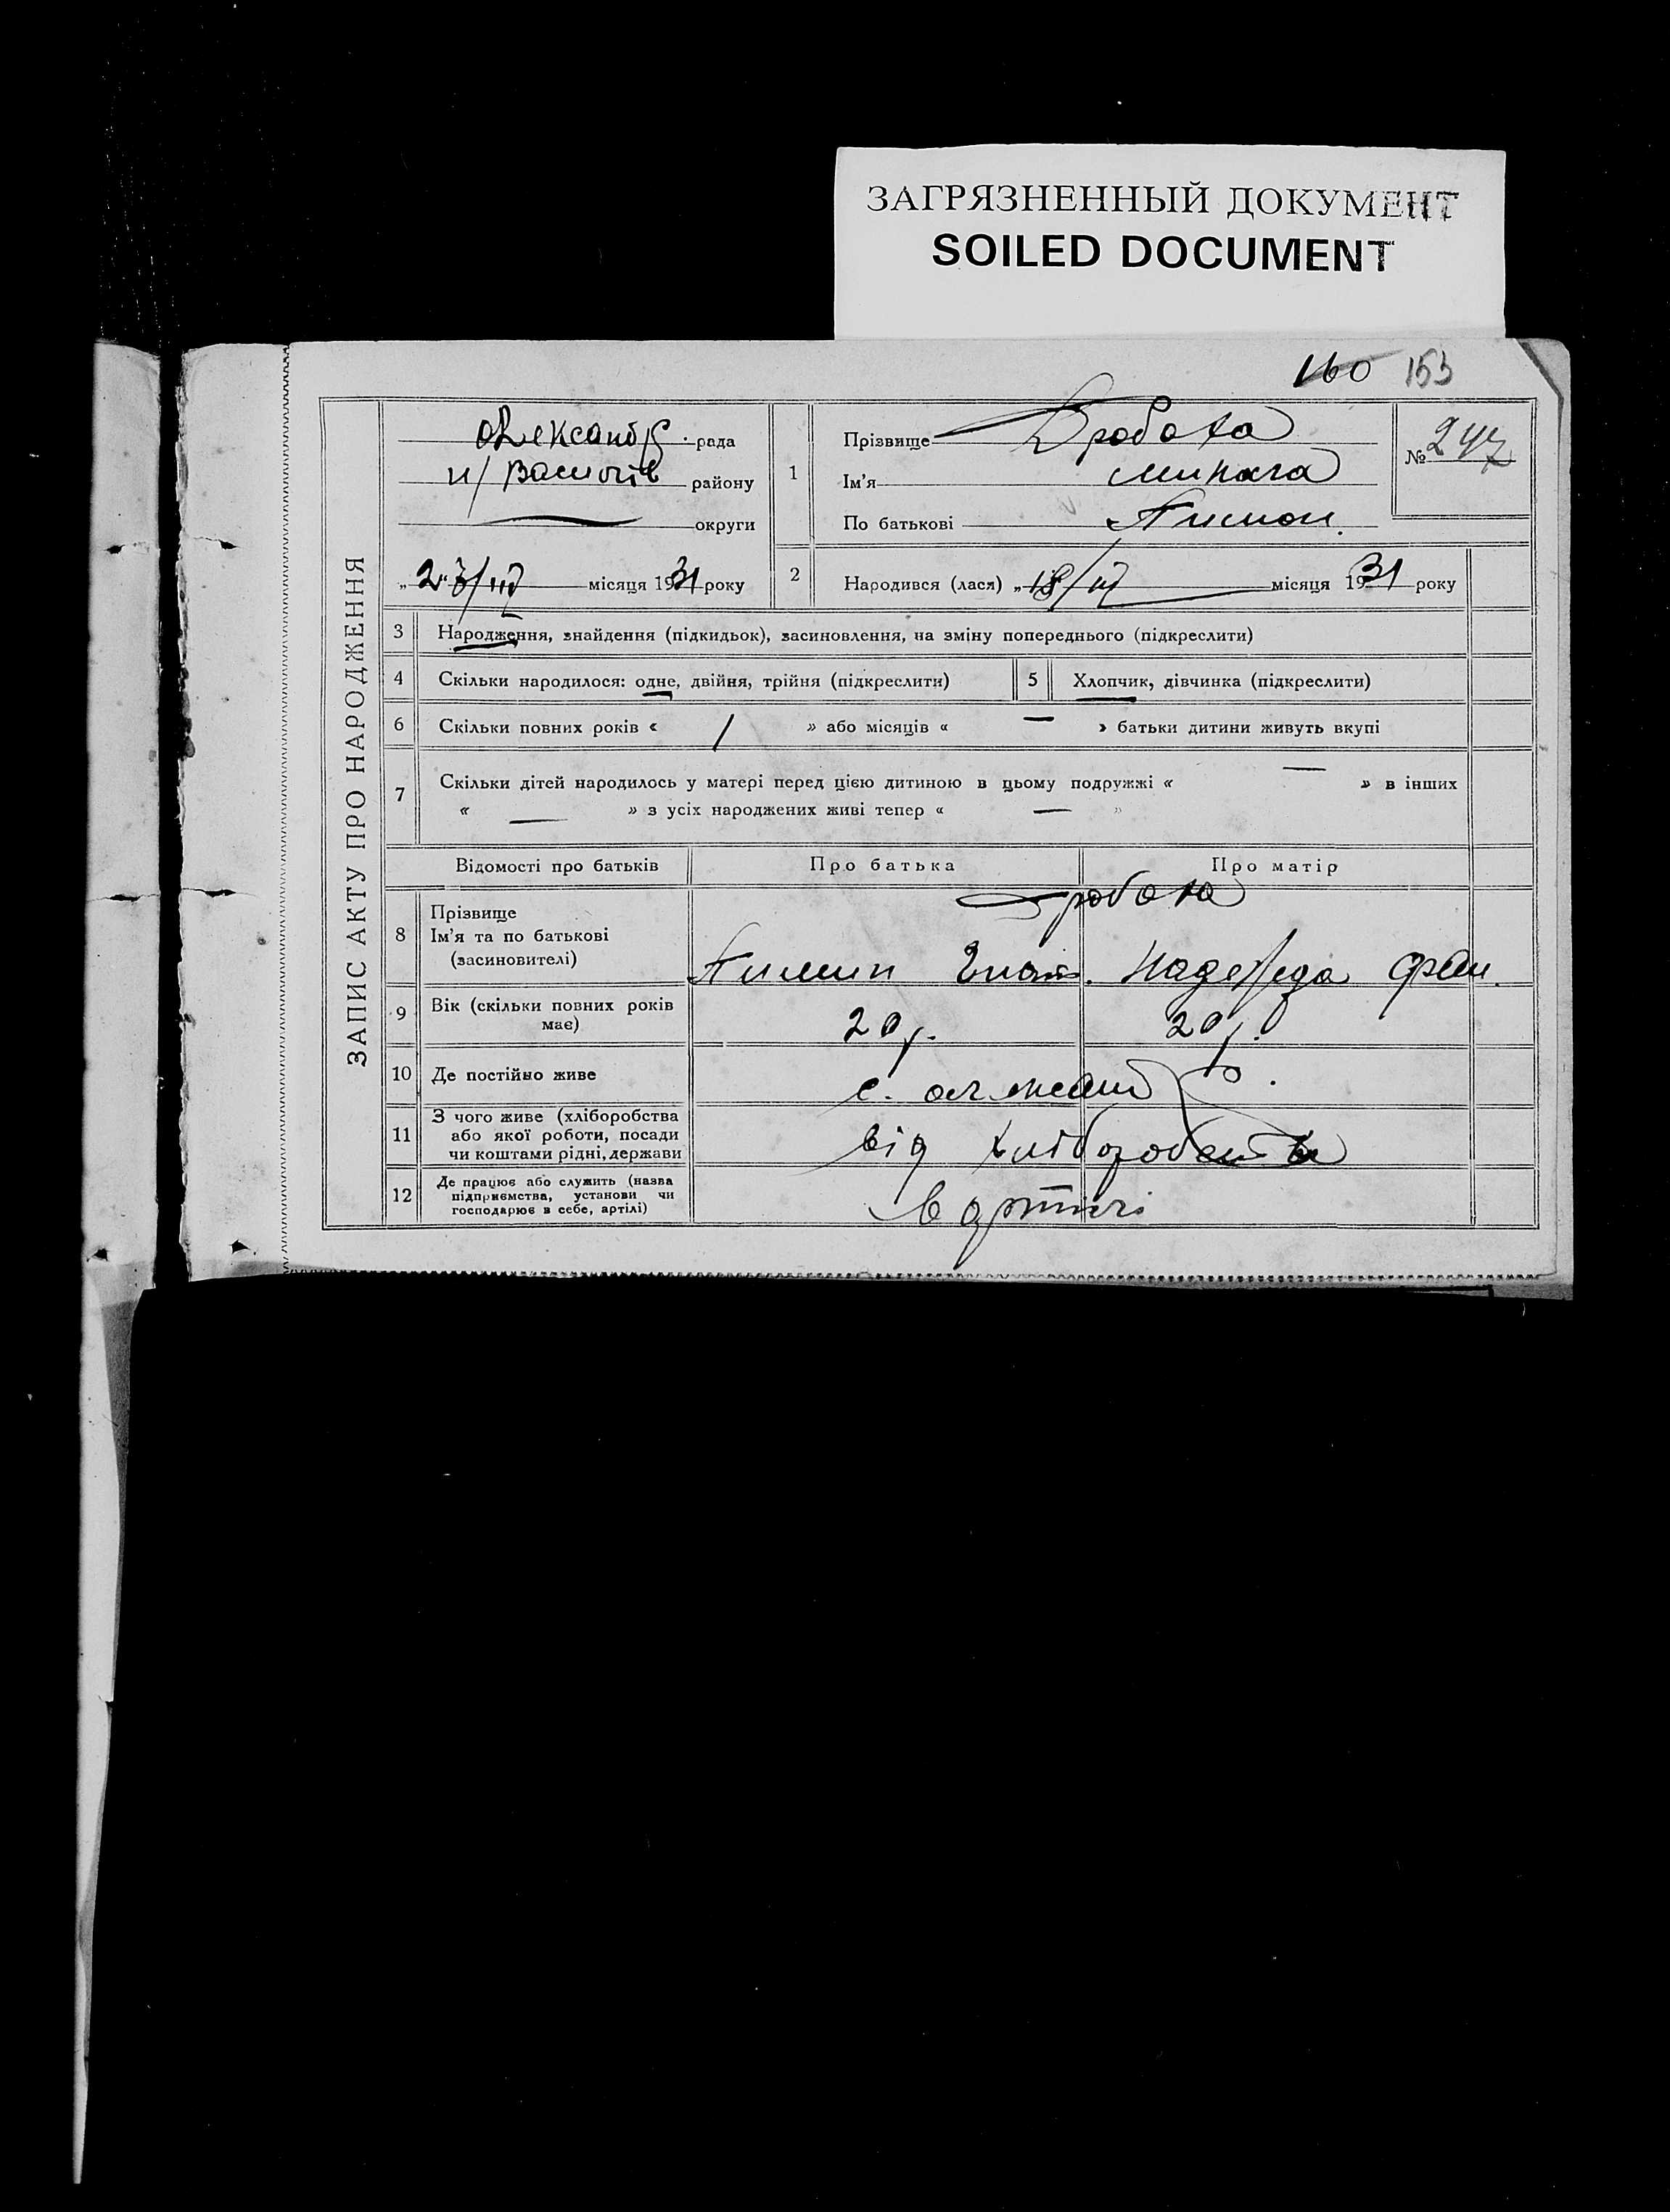 ЗАГРЯЗНЕННЫЙ ДОКУМЕНТ
SOILED DOCUMENT
160 153
ЗАПИС АКТУ ПРО НАРОДЖЕННЯ
рада
н/ району
округи
„23/ місяця 1931 року
1
Прізвище Дробаха
Ім'я Микола
По батькові Пимон.
№ 247
2
Народився (лася) „18/ місяця 1931 року
3 Народження, знайдення (підкидьок), засиновлення, на зміну попереднього (підкреслити)
4 Скільки народилося: одне, двійня, трійня (підкреслити)
5 Хлопчик, дівчинка (підкреслити)
6 Скільки повних років « / » або місяців « — » батьки дитини живуть вкупі
7 Скільки дітей народилось у матері перед цією дитиною в цьому подружжі « — » в інших
« — » з усіх народжених живі тепер « — »
Відомості про батьків Про батька Про матір
8 Прізвище
Ім'я та по батькові
(засиновителі)
Дробаха
Пимин Гнат. Надежда
9 Вік (скільки повних років
має)
20 р. 20 р.
10 Де постійно живе
с.
11 З чого живе (хліборобства
або якої роботи, посади
чи коштами рідні, держави
від хліборобства
12 Де працює або служить (назва
підприємства, установи чи
господарює в себе, артілі)
в артілі